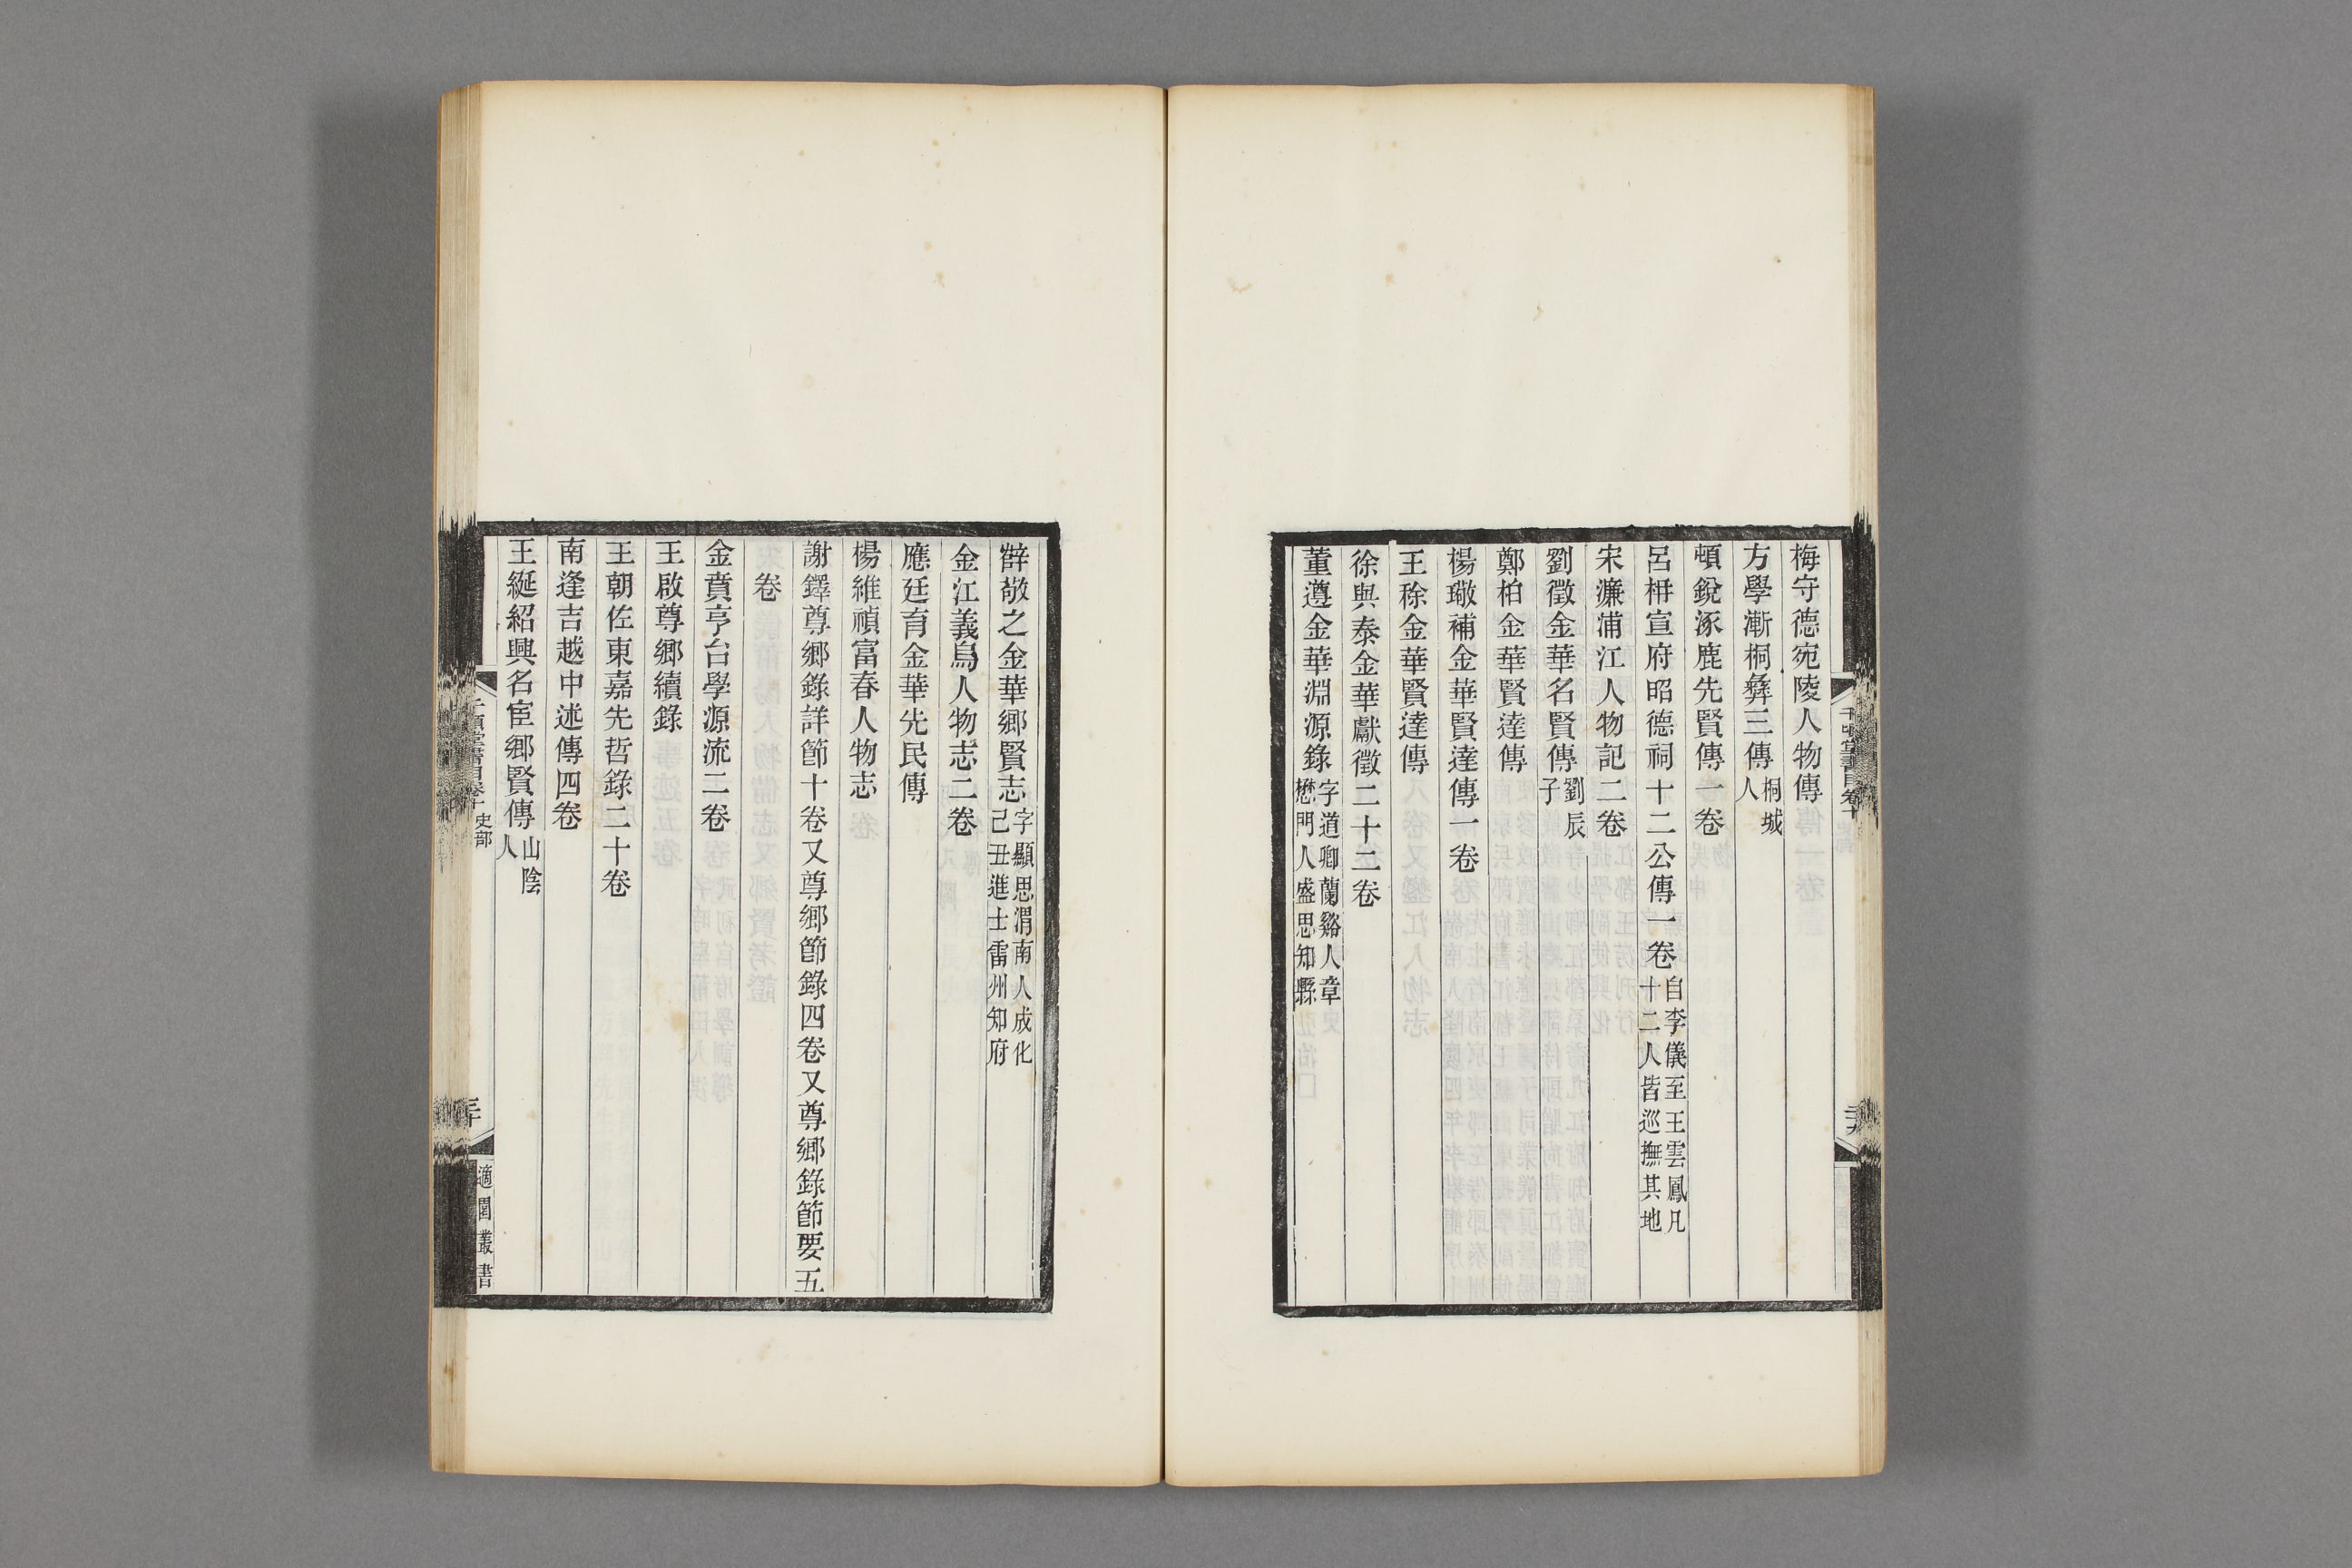 梅守德宛陵人物傳
方學漸桐彝三傳桐城人
頓銳涿鹿先賢傳一卷
呂枏宣府昭德祠十二公傳一卷自李儀至王雲鳳凡十二人皆巡撫其地
宋濂浦江人物記二卷
劉徵金華名賢傳劉辰子
鄭柏金華賢達傳
楊璥補金華賢達傳一卷
王稌金華賢達傳
徐與泰金華獻徵二十二卷
董遵金華淵源錄字道卿蘭谿人章懋門人盛思知縣
辥敬之金華鄉賢志字顯思渭南人成化己丑進士雷州知府
金江義烏人物志二卷
應廷育金華先民傳
楊維禎富春人物志
謝鐸尊鄉錄詳節十卷又尊鄉節錄四卷又尊鄉錄節要五
卷
金賁亨台學源流二卷
王啟尊鄉續錄
王朝佐東嘉先哲錄二十卷
南逢吉越中述傳四卷
王綖紹興名宦鄉賢傳山陰人
千頃堂書目卷十 史部
三十
適園叢書